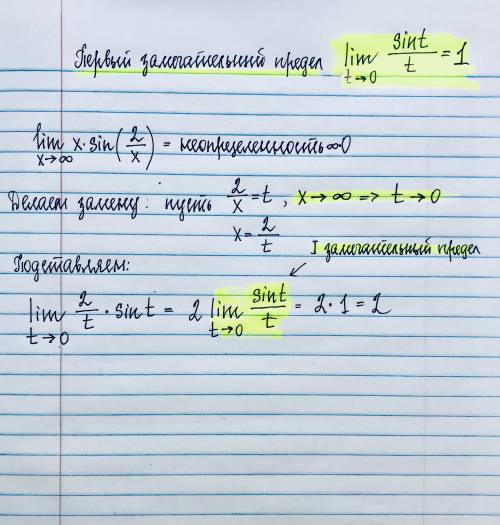 Первый замечательный предел lim t→0 sint/t = 1
lim x→∞ x·sin(2/x) = неопределенность ∞·0
Делаем замену: пусть 2/x = t, x→∞ => t→0
x = 2/t
I замечательный предел
Подставляем:
lim t→0 2/t · sint = 2 lim t→0 sint/t = 2·1 = 2